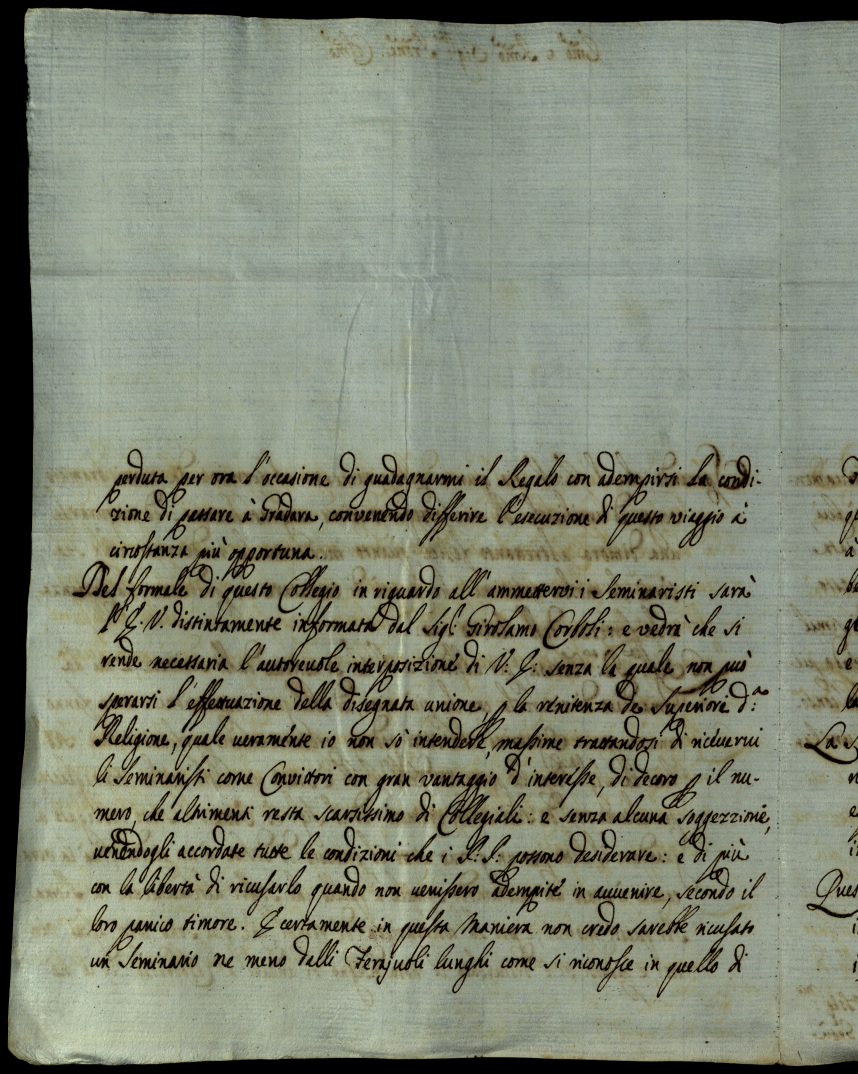 perduta per ora l'occasione di guadagnarmi il Regalo con adempirsi la condi-
zione di passare à Gradara, convenendo differire l'esecuzione di questo viaggio à
circostanza più opportuna.
Del formale di questo Collegio in riguardo all'ammettervi i Seminaristi sarà
l'E. V. distintamente informata dal Sig.r Girolamo : e vedrà che si
rende necessaria l'autorevole interposizione di V. E: senza la quale non può
sperarsi l'effettuazione della disegnata unione, p la renitenza de Superiore d.a
Religione, quale veramente io non sò intendere, massime trattandosi di ricevervi
li Seminaristi come Convittori con gran vantaggio d'interesse, di decoro, p il nu-
mero, che altrimenti resta scarsissimo di Collegiali: e senza alcuna soggezzione,
venendogli accordate tutte le condizioni che i P.P. possono desiderare: e di più
con la libertà di ricusarlo quando non venissero adempite in avvenire, secondo il
loro panico timore. E certamente in questa maniera non credo sarebbe ricusato
un Seminario ne meno dalli Ferajuoli lunghi come si riconosce in quello di